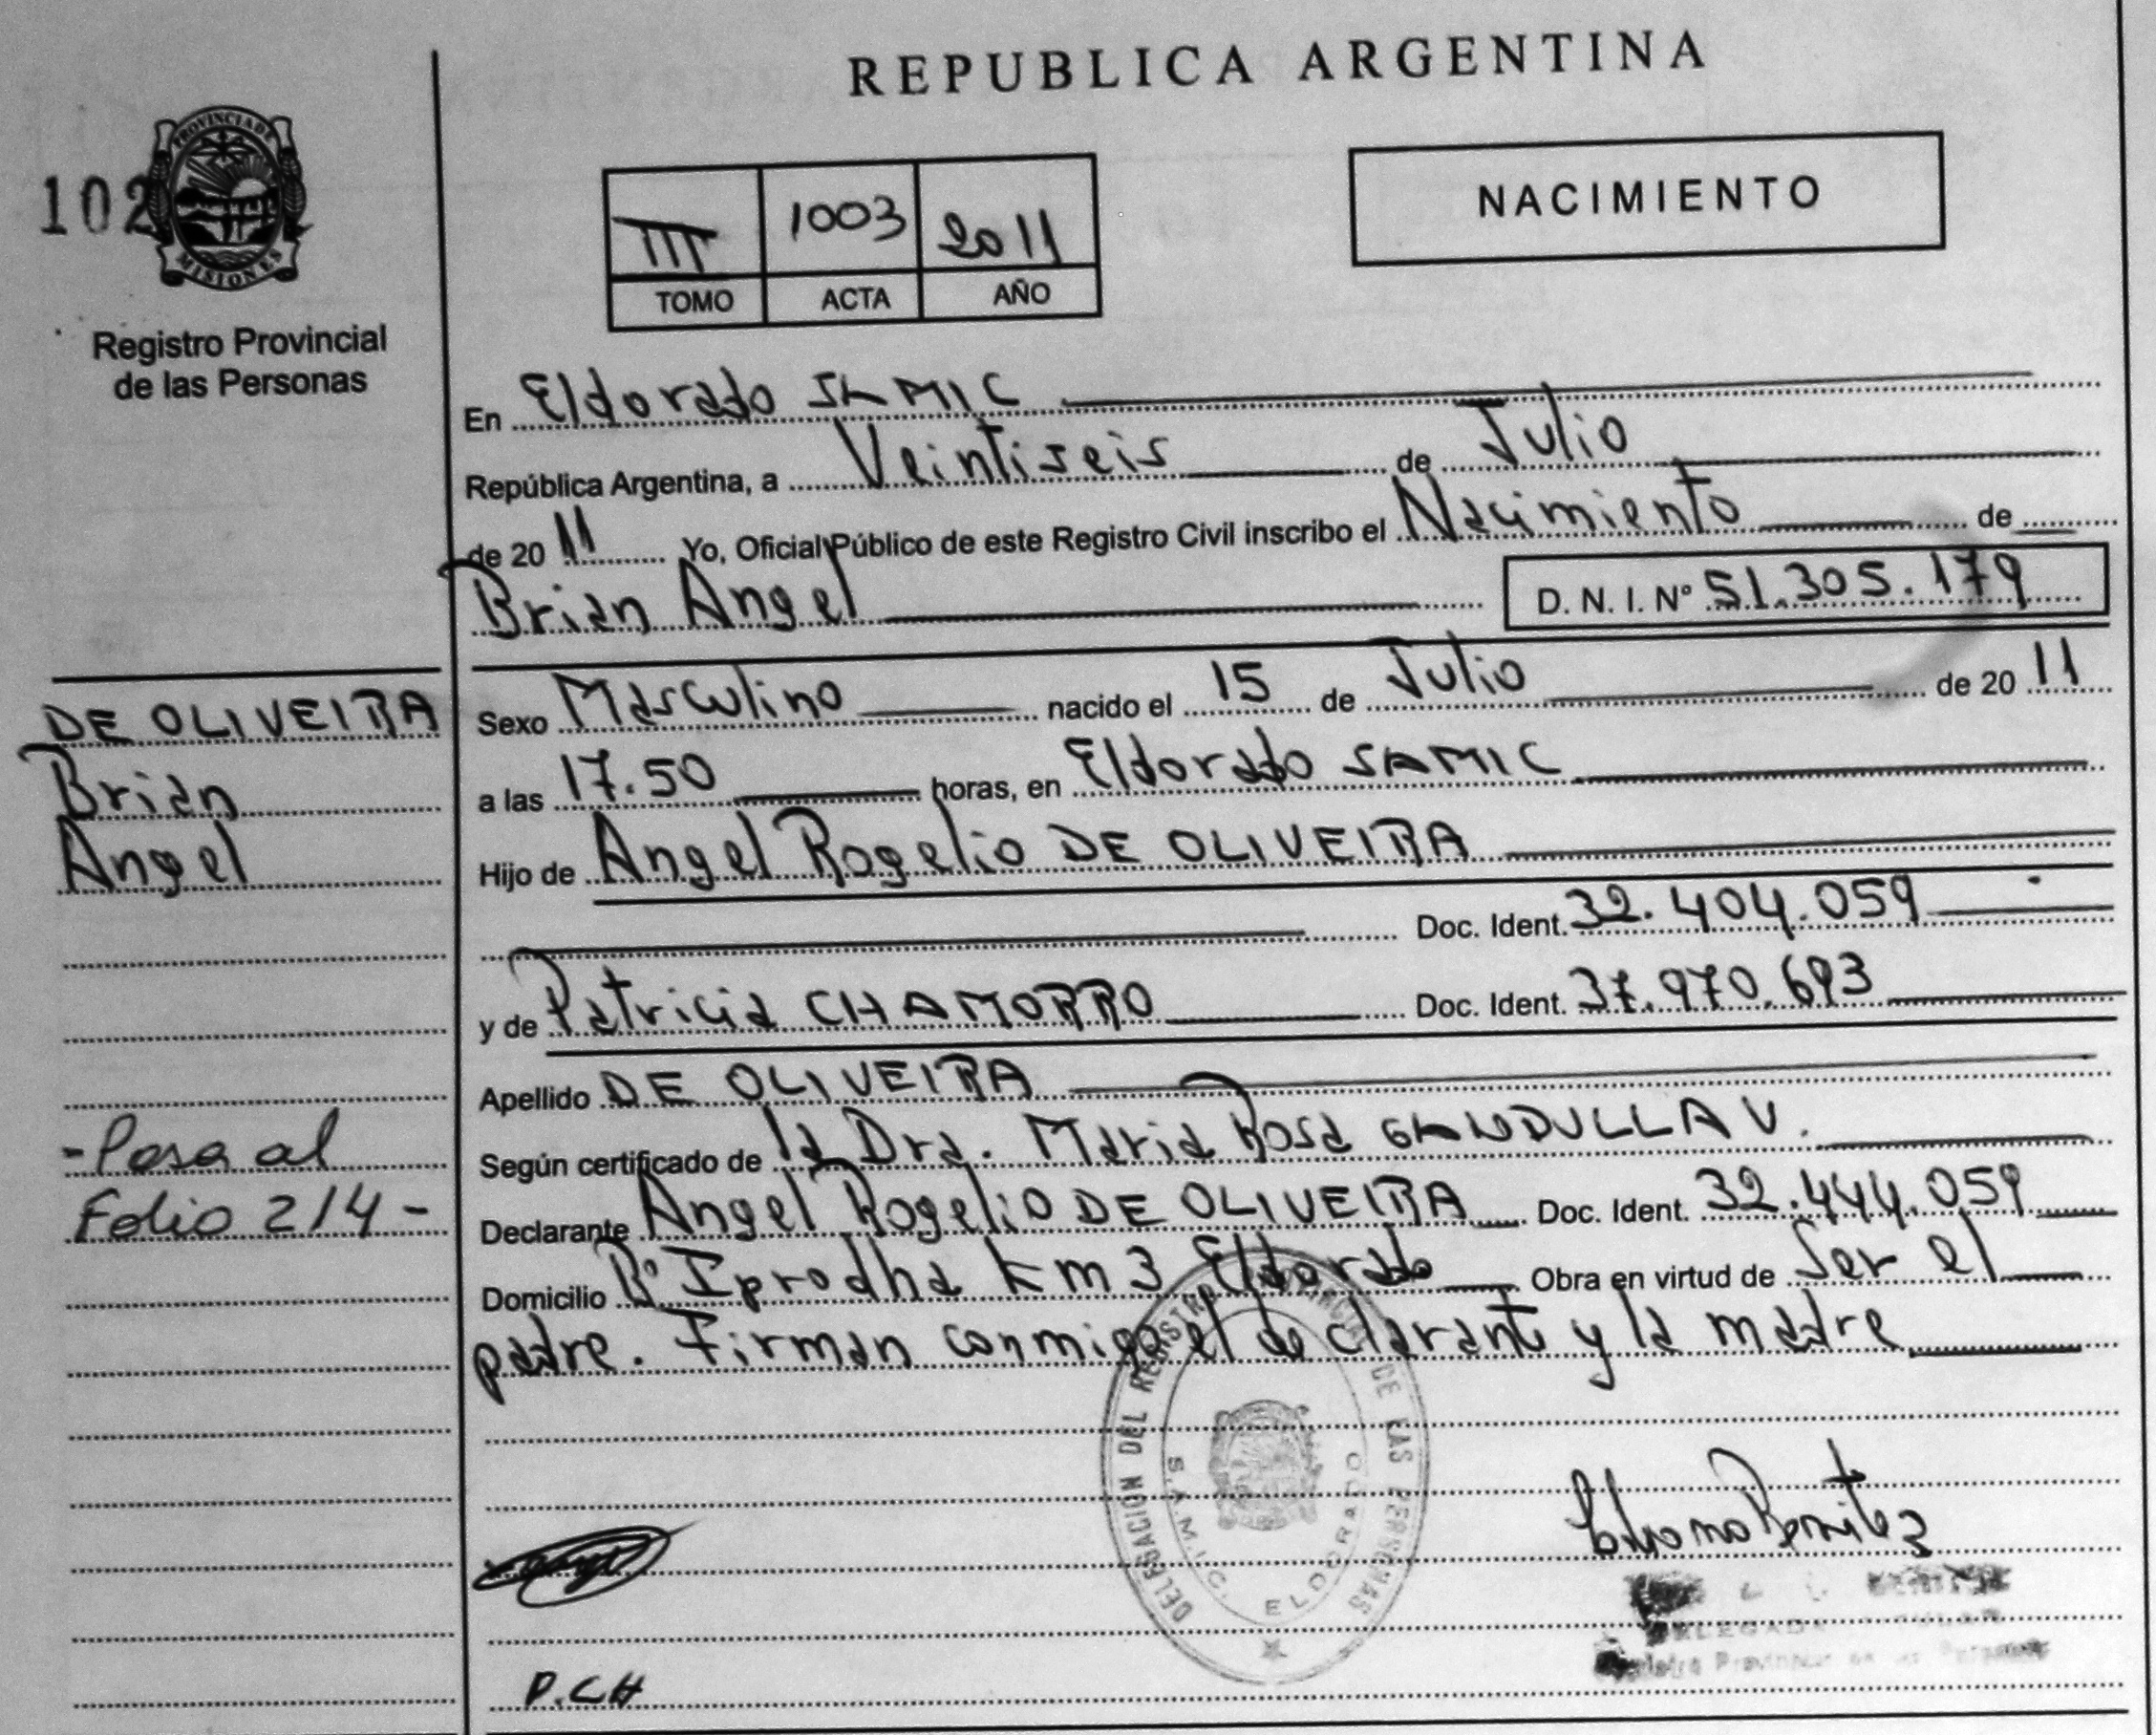 REPUBLICA ARGENTINA
102
PROVINCIA DE
MISIONES
Registro Provincial
de las Personas
III 1003 2011
TOMO ACTA AÑO
NACIMIENTO
En Eldorado SAMIC
República Argentina, a Veintiseis de Julio
de 20 11 Yo, Oficial Público de este Registro Civil inscribo el Nacimiento de
Brian Angel D. N. I. Nº 51.305.179
DE OLIVEIRA
Brian
Angel
Sexo Masculino nacido el 15 de Julio de 20 11
a las 17.50 horas, en Eldorado SAMIC
Hijo de Angel Rogelio DE OLIVEIRA
Doc. Ident. 32.404.059
y de Patricia CHAMORRO Doc. Ident. 37.970.693
Apellido DE OLIVEIRA
Según certificado de la Dra. Maria Rosa GANDULLA V.
Declarante Angel Rogelio DE OLIVEIRA Doc. Ident. 32.444.059
Domicilio Bº Iprodha Km 3 Eldorado Obra en virtud de Ser el
padre. Firman conmigo el declarante y la madre
- Pasa al
Folio 214 -
DELEGACION DEL REGISTRO PROVINCIAL DE LAS PERSONAS
S.A.M.I.C. ELDORADO
Benitez
P.CH